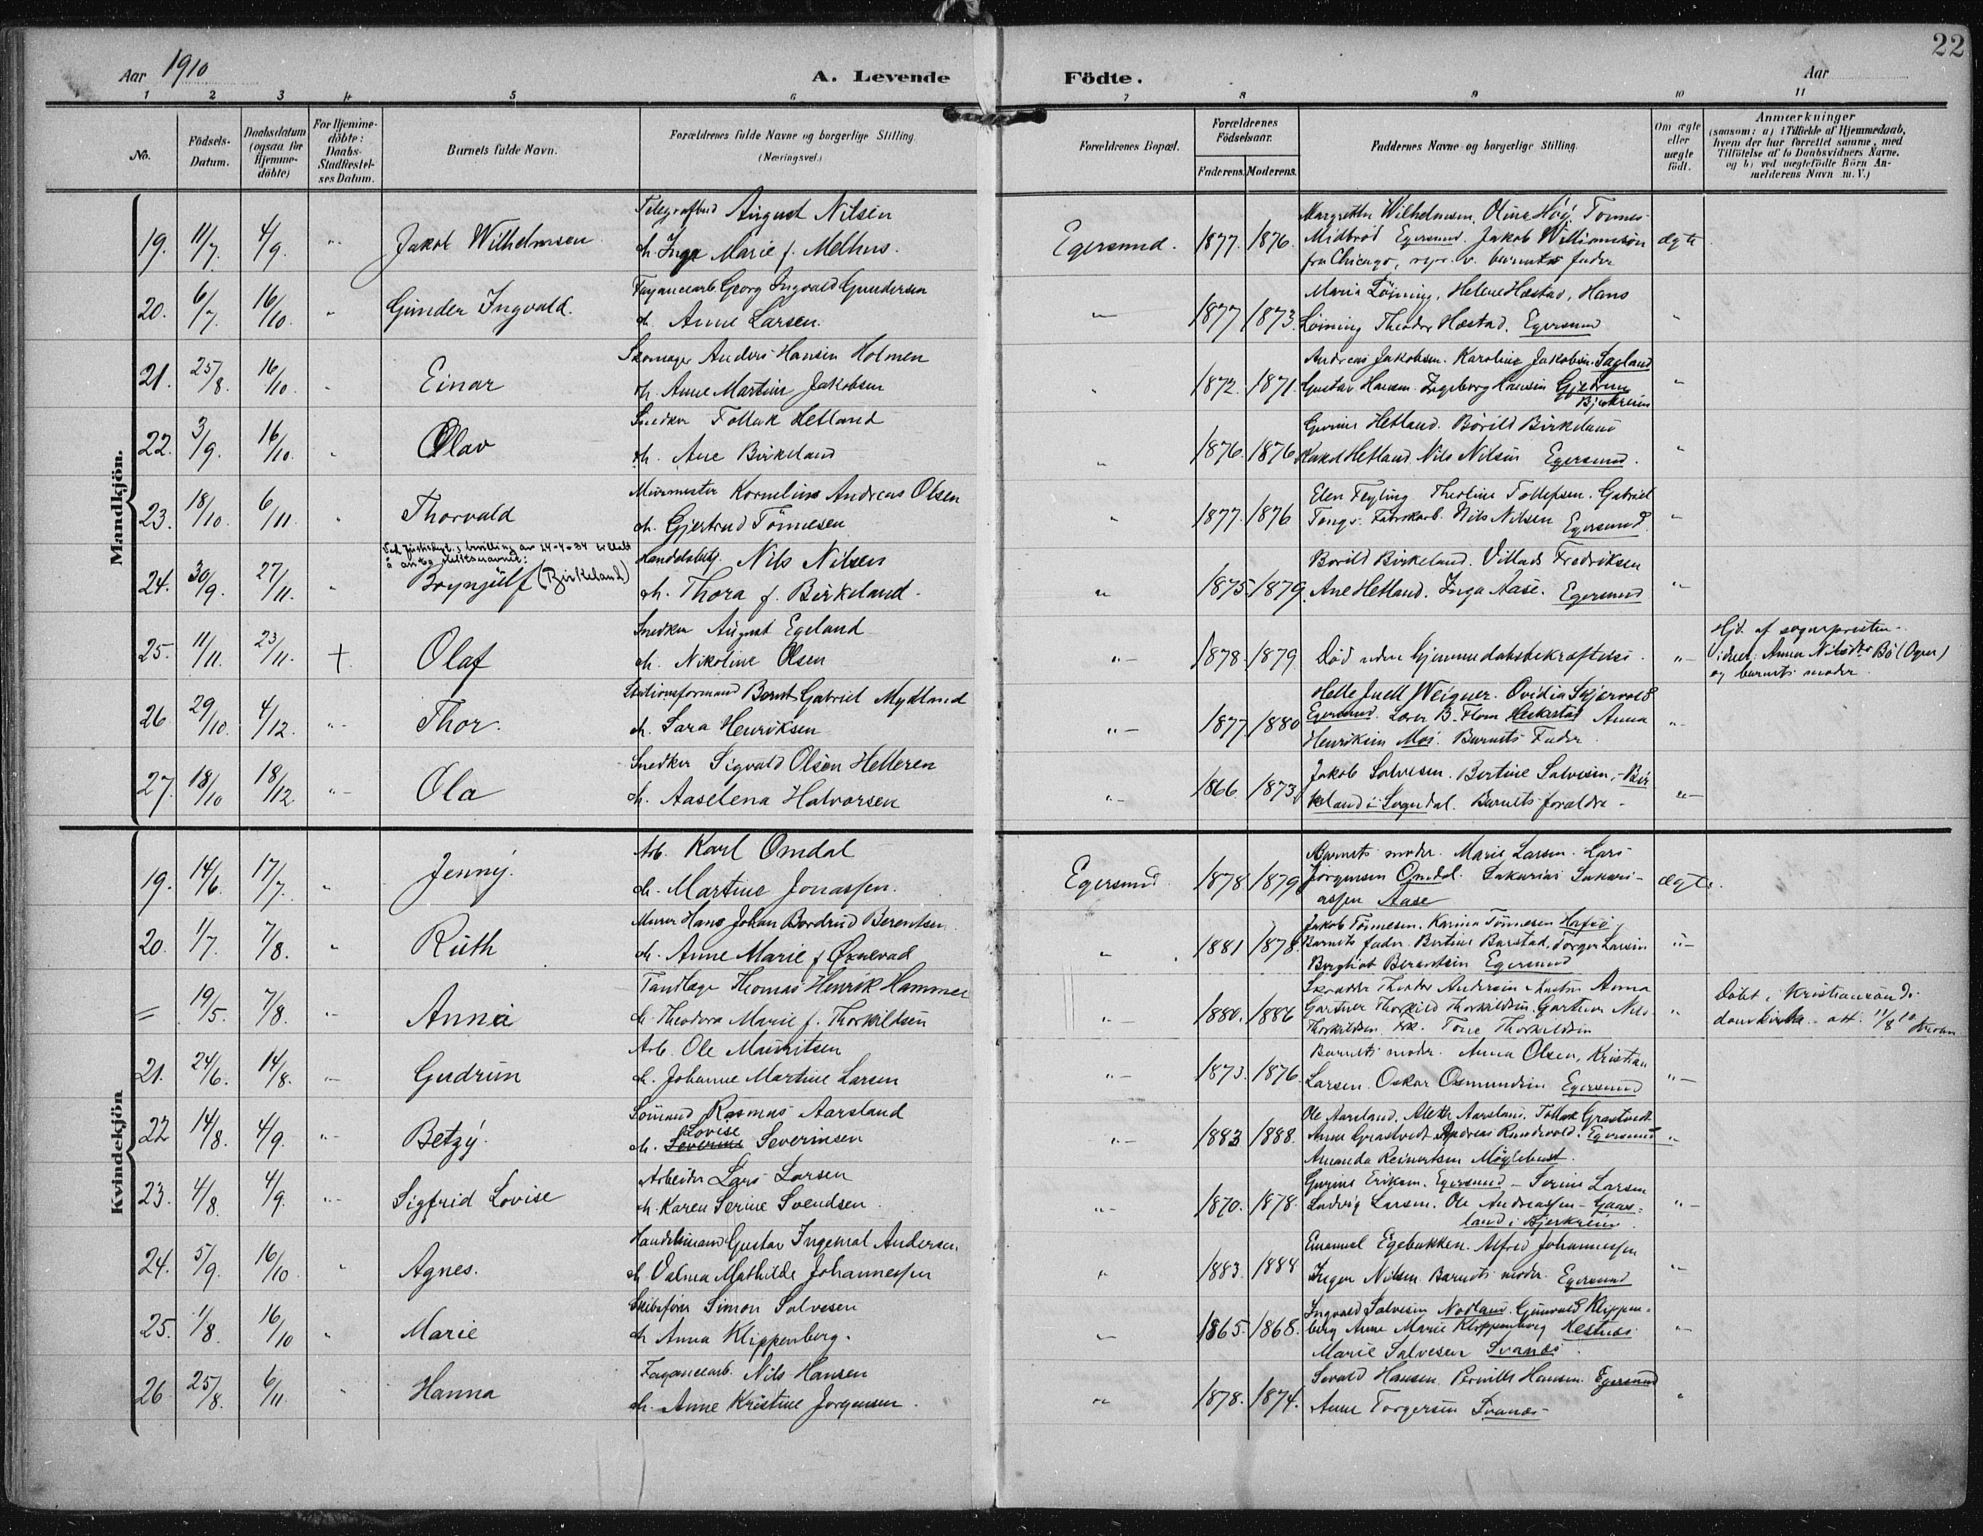 22
Aar 1910
A. Levende Fødte.
Aar
1 2 3 4 5 6 7 8 9 10 11
No.
Födsels-Datum.
Daabsdatum (ogsaa for Hjemme-döbte)
For Hjemme-döbte: Daabs-Stadfæstel-ses Datum.
Barnets fulde Navn.
Forældrenes fulde Navne og borgerlige Stilling. (Næringsvei.)
Forældrenes Bopæl.
Forældrenes Födselsaar.
Faderens. Moderens.
Faddernes Navne og borgerlige Stilling.
Om ægte eller uægte født.
Anmærkninger
(saasom: a) i Tilfælde af Hjemmedaab,
hvem der har forrettet samme, med
Tilföielse af to Daabsvidners Navne,
og b) ved uægtefödte Börn An-
melderens Navn m. V.)
Mandkjön.
19. 11/7. 4/9. Jakob Wilhelmsen.
Telegrafbud August Nilsen
Inga Marie f. Melhus.
Egersund. 1877. 1876.
Margrethe Wilhelmsen. Olina Høg. Tønnes
Midbrød Egersund. Jakob Williamson
fra Chicago, repr. v. barnets fader
ægte
20. 6/7. 16/10. Gunder Ingvald.
Fayancearb. Georg Ingvald Gundersen
Anne Larsen.
1877 1873.
Maria Löining, Helene Hæstad, Hans
Löining Theodor Hæstad. Egersund
21. 25/8. 16/10. Einar
Skomager Anders Hansen Holmen
Anne Martine Jakobsen
1872. 1871
Andreas Jakobsen. Karoline Jakobsen. Sagland
Gustav Hansen. Ingeborg Hansen Gjedrem
Bjerkreim
22. 3/9. 16/10. Olav
Snedker Tollak Hetland
Ane Birkeland
1876. 1876
Gurine Hetland. Börild Birkeland
Hetland. Nils Nilsen Egersund.
23. 18/10. 6/11. Thorvald
Murmester Kornelius Andreas Olsen
Gjertrud Tönnesen
1877. 1876
Elen Feyling. Theoline Tollefsen. Gabriel
Fabrikarb. Nils Nilsen Egersund.
24. 30/9. 27/11. Brynjulf (Birkeland)
Handelsbetj. Nils Nilsen
Thora f. Birkeland.
1875 1879.
Borild Birkeland. Villads Fredriksen
Ane Hetland. Inga Aase. Egersund
25. 11/11. 23/11. + Olaf
Snedker August Egeland
Nikoline Olsen
1878. 1879
Død uden hjemmedaabsbekræftelse.
Hjd. af sognepresten.
Anna Bö (Ogna)
og barnets moder.
26 29/10. 4/12. Thor.
Stationsformand Bernt Gabriel Mydland
Sara Henriksen
1877. 1880
Helle Juell Weigner. Ovidia Skjervold
Egersund. B. Flom Heskestad Anna
Henriksen Moi. Barnets Fader.
27. 18/10 18/12. Ola
Snedker Sigvald Olsen Helleren
Aaselena Halvorsen
1866. 1873.
Jakob Salvesen. Bertine Salvesen, Bir
keland i Sogndal. Barnets forældre
Kvindekjön
19. 14/6. 17/7. Jenny.
Arb. Karl Omdal
Martine Jonassen.
Egersund 1878. 1879
Barnets moder. Marie Larsen. Lars
Jörgensen Omdal. Sakarias Sakari-
assen Aase
ægte.
20. 1/7. 7/8. Ruth
Murer Hans Johan Berentsen
Anne Marie f. Øxnevad
1881 1878.
Jakob Tönnesen. Karina Tönnesen Hafsö,
Barnets fader. Bertine Barstad. Torger Larsen
Bergliot Berentsen Egersund
= 19/5. 7/8. Anna
Tandlæge Thomas Henrik Hammer
Theodora Marie f. Thorkildsen
1880. 1886
Skrædder Theodor Andersen & hustru Anna
Gartner Thorkild Thorkildsen. Gartner Nils
Thorkildsen. frk. Tone Thorkildsen
Døbt i Kristiansands
domkirke att. 11/8 10
21. 24/6. 14/8. Gudrun
Arb. Ole Mauritsen
Johanne Martine Larsen
1873. 1876.
Barnets moder. Anna Olsen, Kristian
Larsen. Oskar Osmundsen Egersund
22 14/8. 4/9. Betzy.
Sömand Rasmus Aarsland
Lovise
Severine Severinsen
1883 1888.
Ole Aarsland. Alette Aarsland. Tollak Grastvedt
Anne Grastvedt Andreas Rundvold. Egersund
Amanda Reinertsen Møglebust.
23. 4/8. 4/9. Sigfrid Lovise
Arbeider Lars Larsen
Karen Serine Svendsen
1870. 1878.
Gurine Eriksen. Egersund - Serine Larsen
Ludvig Larsen. Ole Andreassen - Gaas-
land i Bjerkreim.
24. 5/9. 16/10. Agnes.
Handelsmand Gustav Ingemal Andersen
Valma Mathilde Johannessen
1883. 1884
Emanuel Egebakken. Alfred Johannessen
Inger Nilsen. Barnets moder. Egersund
25. 1/8. 16/10 Marie
Skibsfører Simon Salvesen
Anna Klippenberg.
1865. 1868.
Ingvald Salvesen Nodland. Gunvald Klippen-
berg Anne Marie Klippenberg Hestnes
Marie Salvesen Svanes.
26 25/8. 6/11. Hanna
Fayancearb. Nils Hansen
Anne Kristine Jorgensen.
1878. 1874.
Sevald Hansen. Pernille Hansen. Egersund
Anne Torgersen Svanes